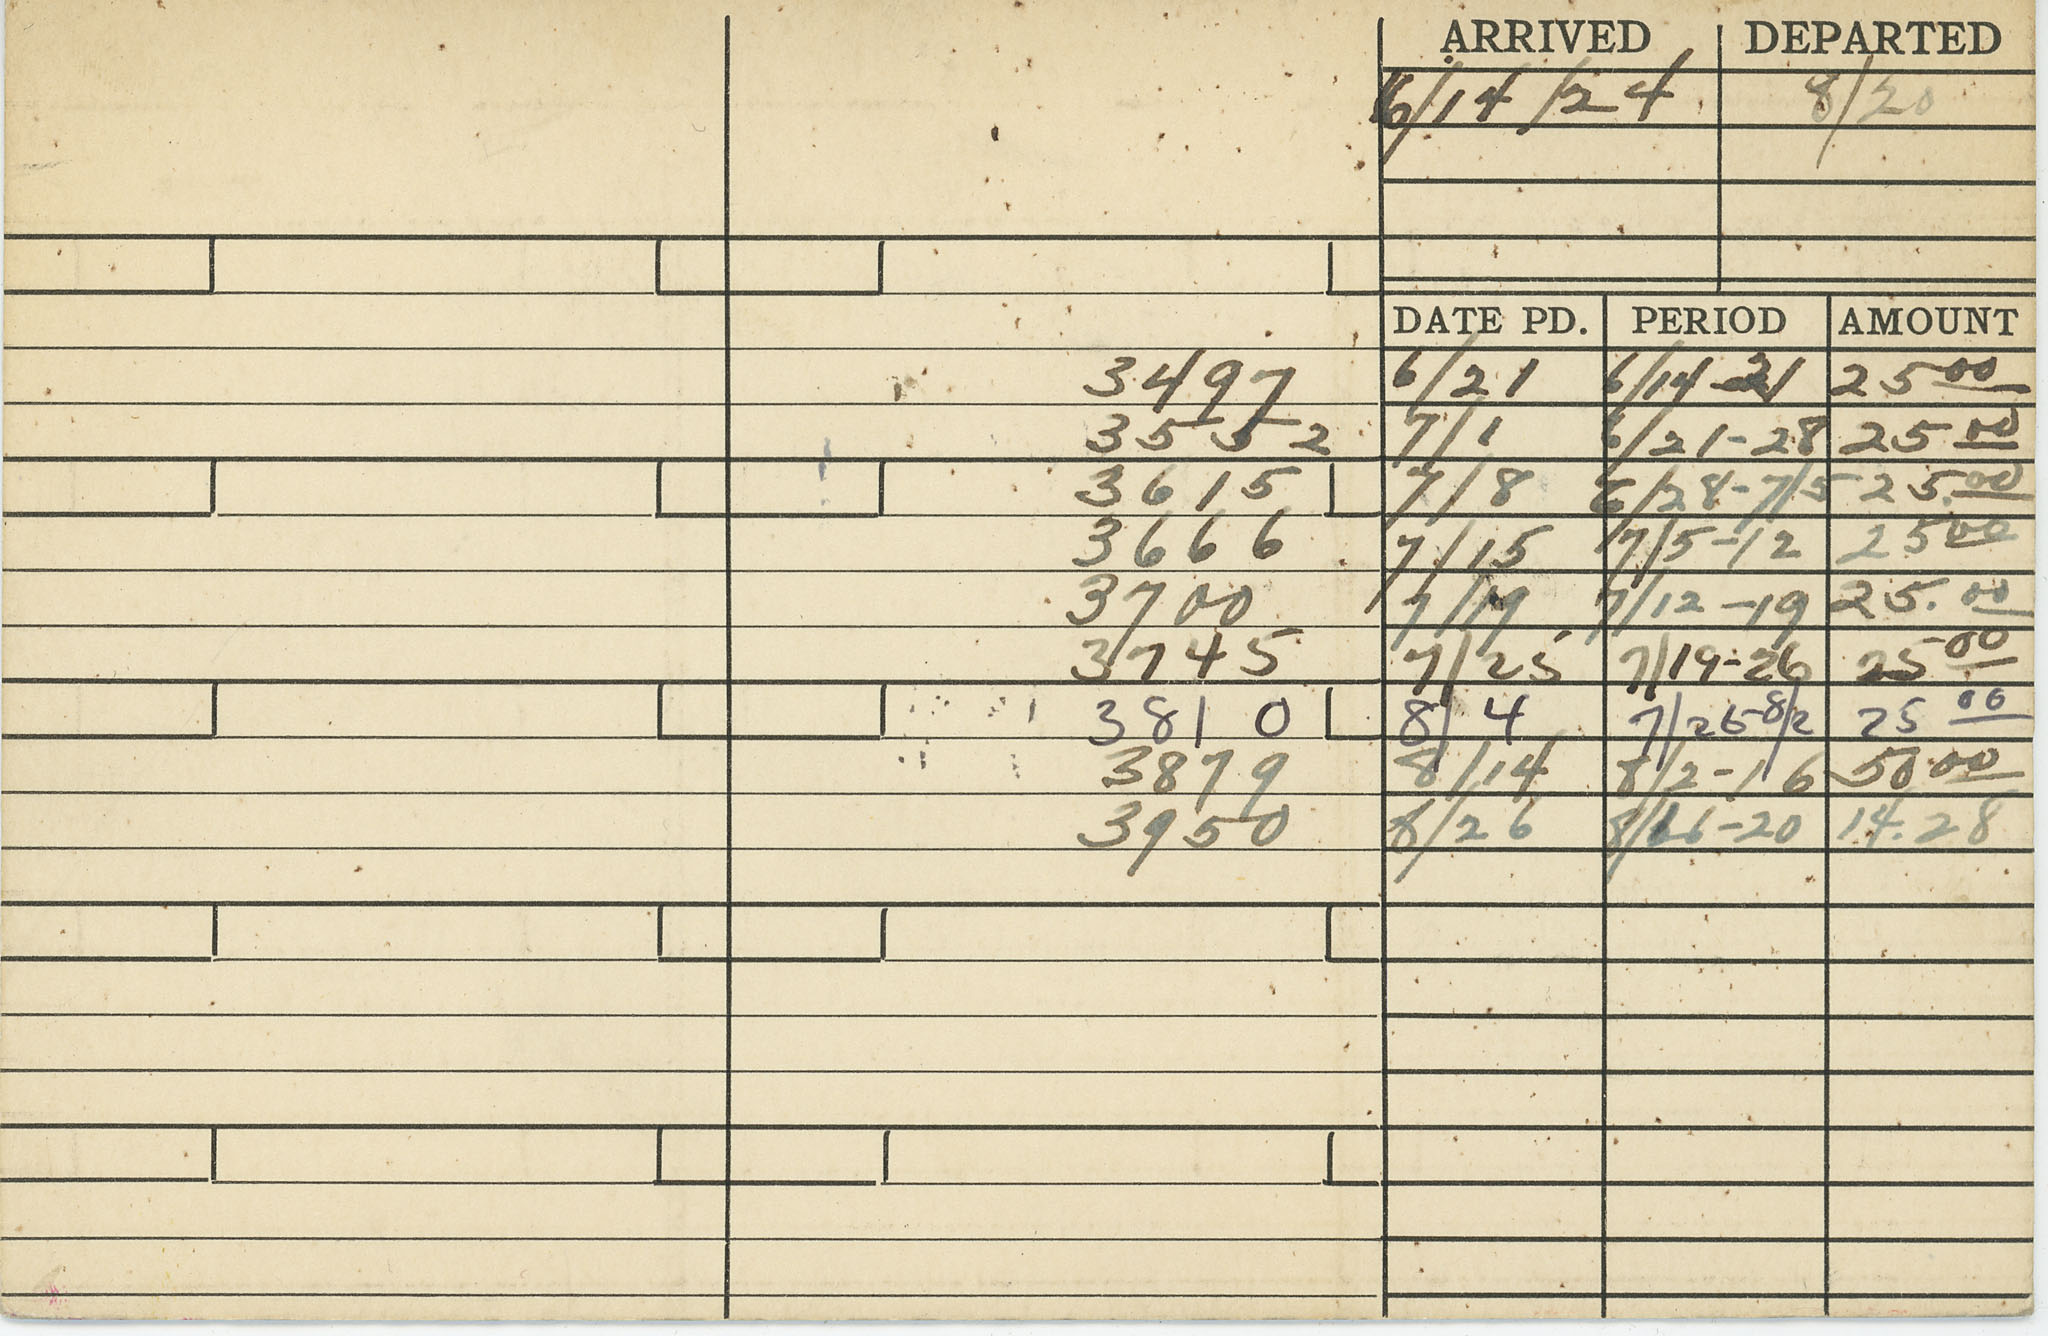 ARRIVED DEPARTED
6/14/24 8/20
DATE PD. PERIOD AMOUNT
3497 6/21 6/14-21 25 00
3552 7/1 6/21-28 25 00
3615 7/8 6/28-7/5 25.00
3666 7/15 7/5-12 25 00
3700 7/19 7/12-19 25.00
3745 7/25 7/19-26 25 00
3810 8/4 7/26-8/2 25 00
3879 8/14 8/2-16 50 00
3950 8/26 8/16-20 14.28